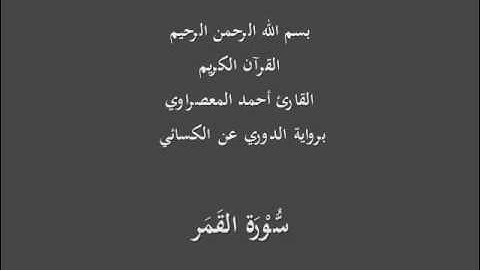 بسم الله الرحمن الرحيم
القرآن الكريم
القارئ أحمد المعصراوي
برواية الدوري عن الكسائي
سُّوْرَة القَمَر